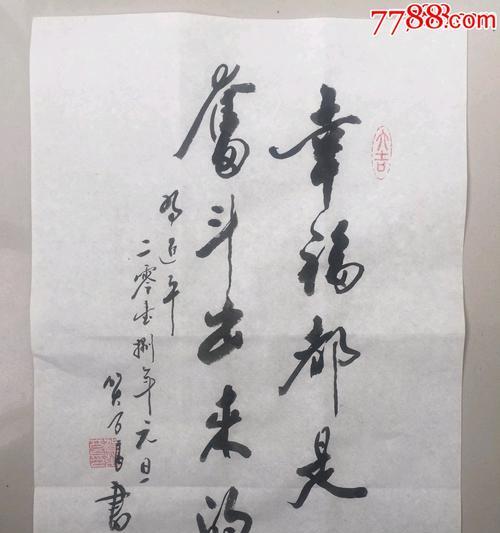 7788.com
大吉
幸福都是
奮斗出来的
习近平
二零壹捌年元旦
書